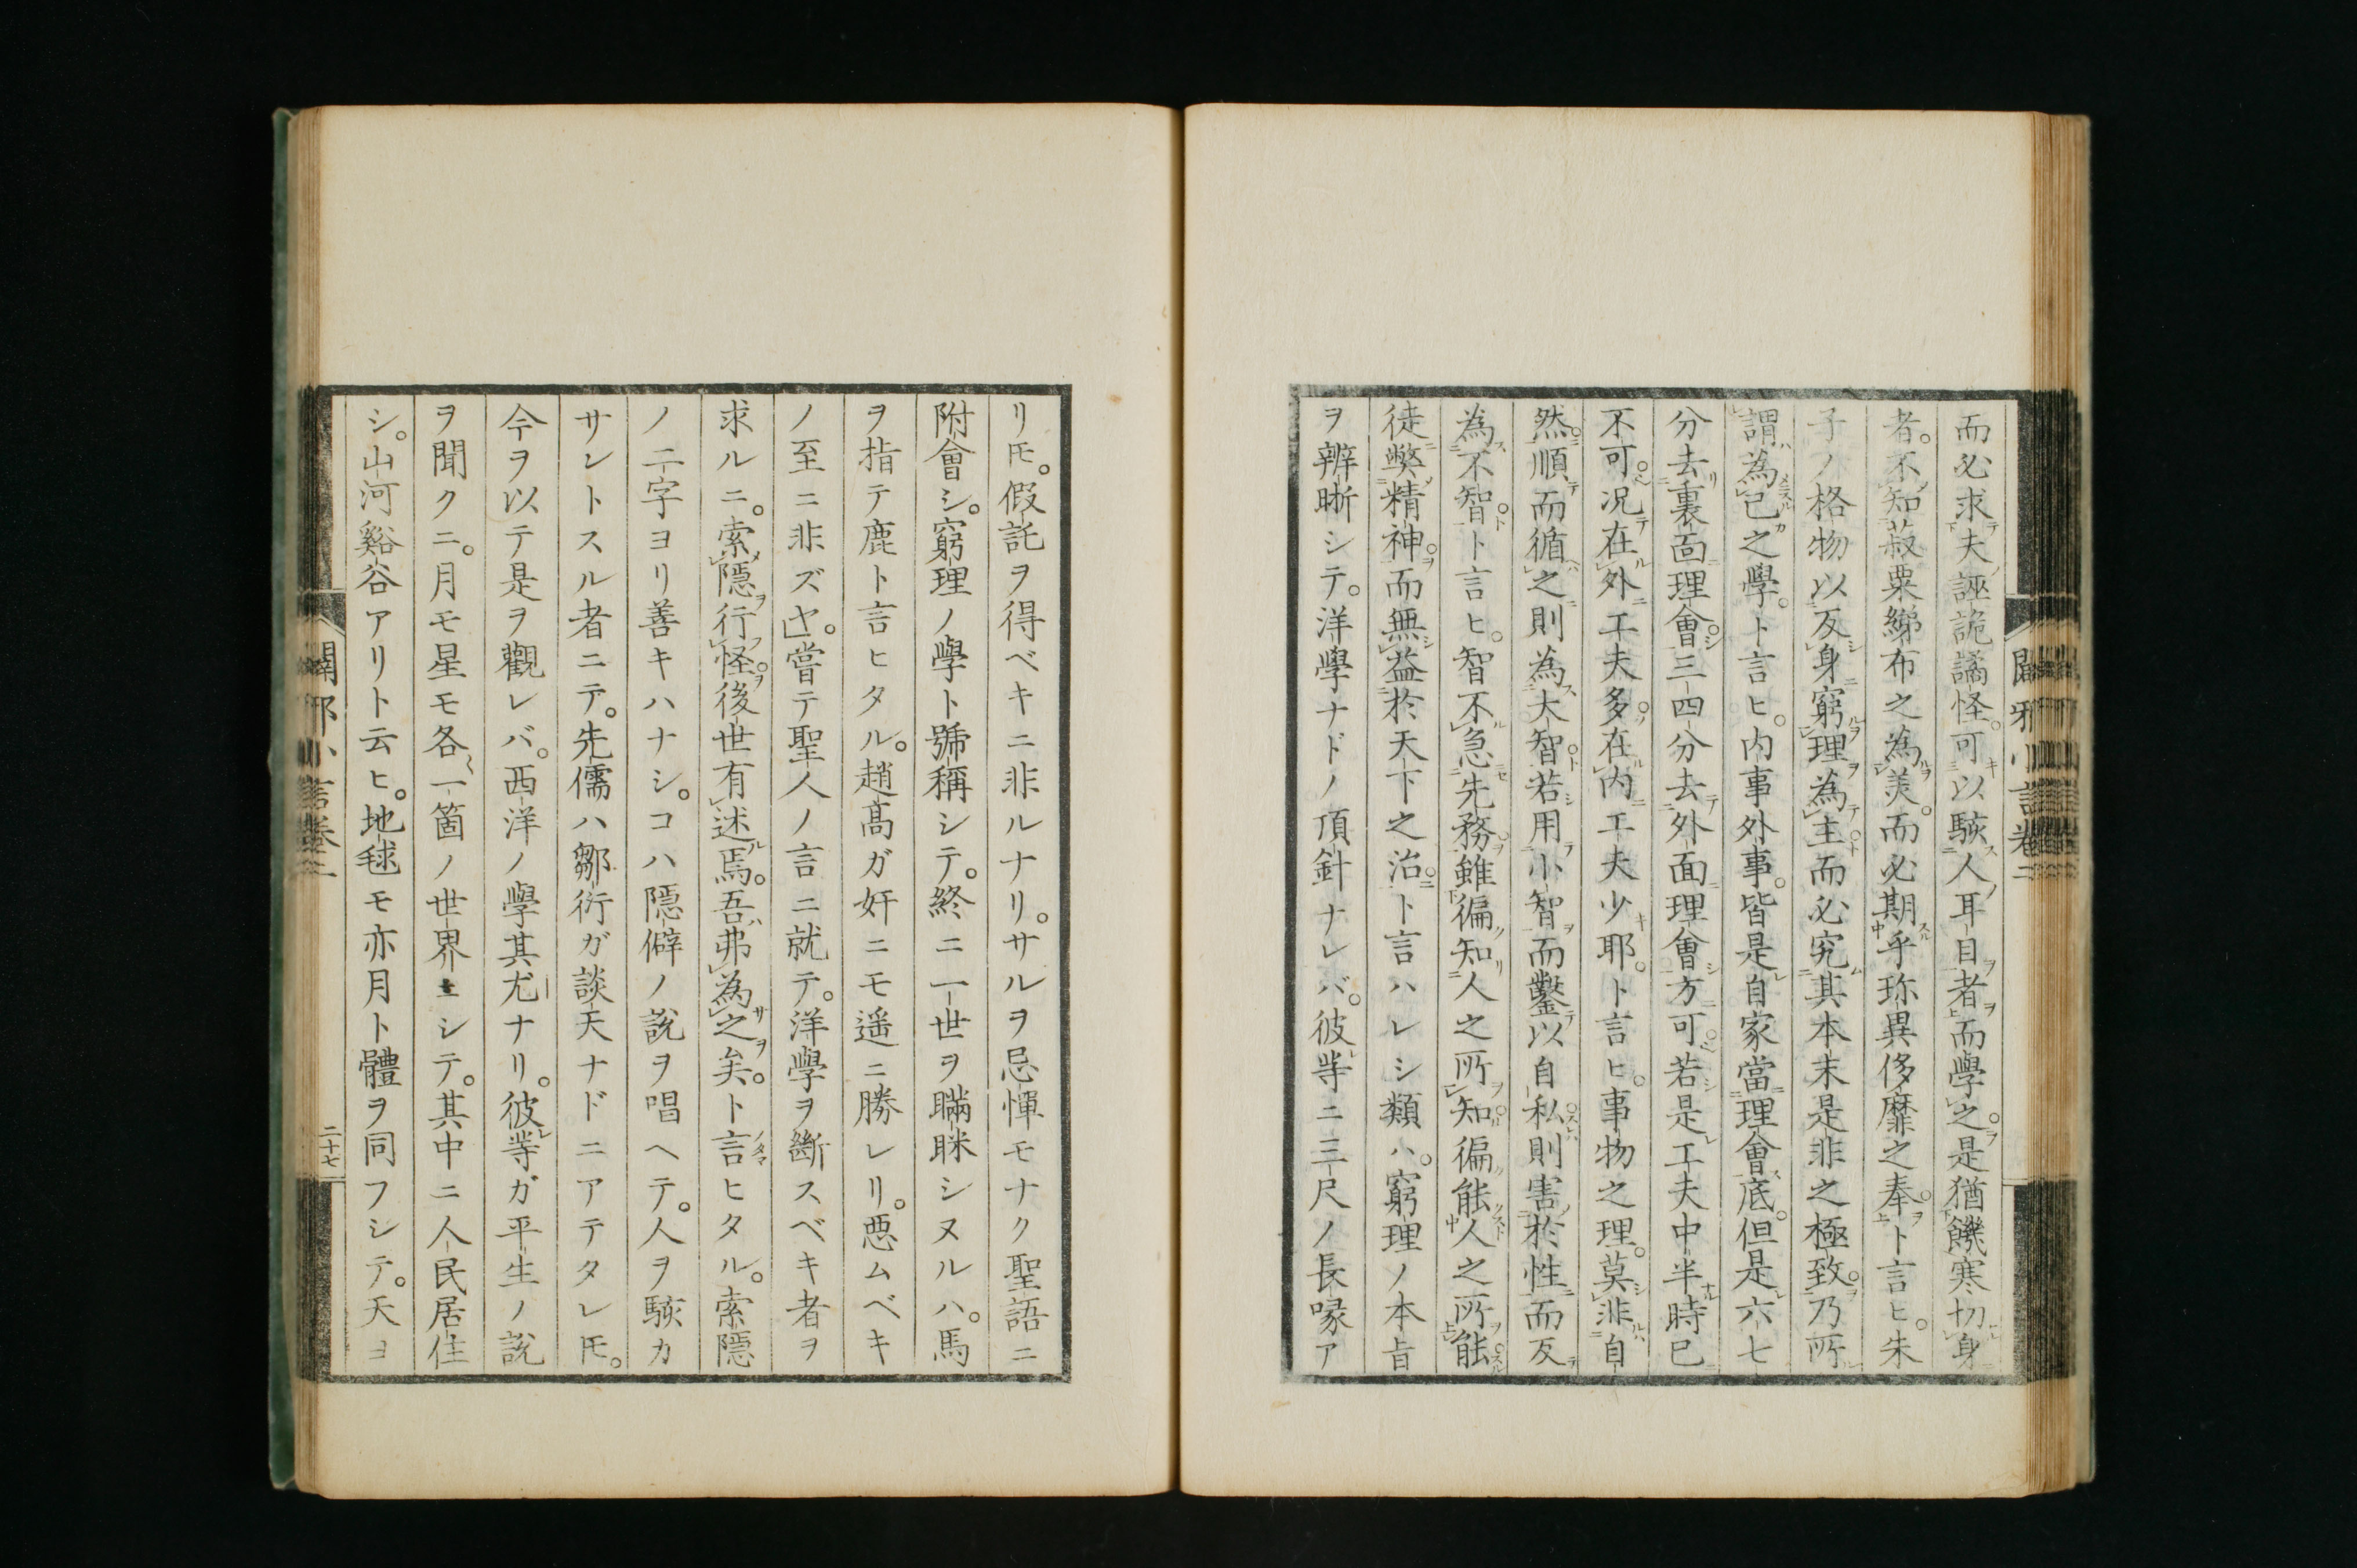 而必求夫誣詭譎怪。可以駭人耳目者而學之。是猶饑寒切身
者。不知菽粟綈布之為美。而必期乎珍異侈靡之奉。ト言ヒ。朱
子ノ格物以反身窮理為主。而必究其本末是非之極致。乃所
謂為己之學。ト言ヒ。内事外事。皆是自家當理會底。但是六七
分去裏面理會。三四分去外面理會方可。若是工夫中半時已
不可。況在外工夫多。在内工夫少耶。ト言ヒ。事物之理。莫非自
然。順而循之則為大智。若用小智而鑿以自私。則害於性而反
為不智。ト言ヒ。智不急先務。雖徧知人之所知。徧能人之所能。
徒弊精神。而無益於天下之治。ト言ハレシ類ハ。窮理ノ本旨
ヲ辨晰シテ。洋學ナドノ頂針ナレバ。彼等ニ三尺ノ長喙ア
リ𪜈。假託ヲ得ベキニ非ルナリ。サルヲ忌憚モナク聖語ニ
附會シ。窮理ノ學ト號稱シテ。終ニ一世ヲ瞞眯シヌルハ。馬
ヲ指テ鹿ト言ヒタル。趙高ガ奸ニモ遥ニ勝レリ。悪ムベキ
ノ至ニ非ズヤ。嘗テ聖人ノ言ニ就テ。洋學ヲ斷スベキ者ヲ
求ルニ。索隱行怪。後世有述焉。吾弗為之矣。ト言ヒタル。索隱
ノ二字ヨリ善キハナシ。コハ隱僻ノ説ヲ唱ヘテ。人ヲ駭カ
サントスル者ニテ。先儒ハ鄒衍ガ談天ナドニアテタレ𪜈。
今ヲ以テ是ヲ觀レバ。西洋ノ學其尤ナリ。彼等ガ平生ノ説
ヲ聞クニ。月モ星モ各〻一箇ノ世界ニシテ。其中ニ人民居住
シ。山河谿谷アリト云ヒ。地毬モ亦月ト體ヲ同フシテ。天ヨ
闢邪小言卷二
二十七